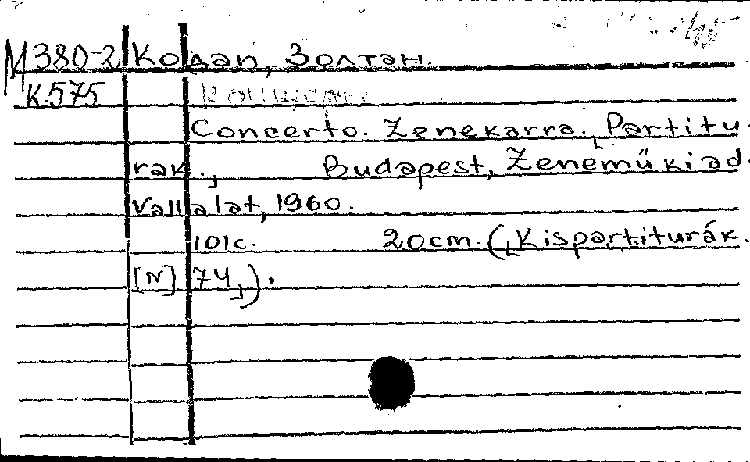 М 380-2 Кодаи, Золтан.
К.575
Concerto. Zenekarra. Partitu-
rak., Budapest, Zeneműkiad.
Vallalat, 1960.
101с. 20cm. („Kispartiturák.
[N] 74„).